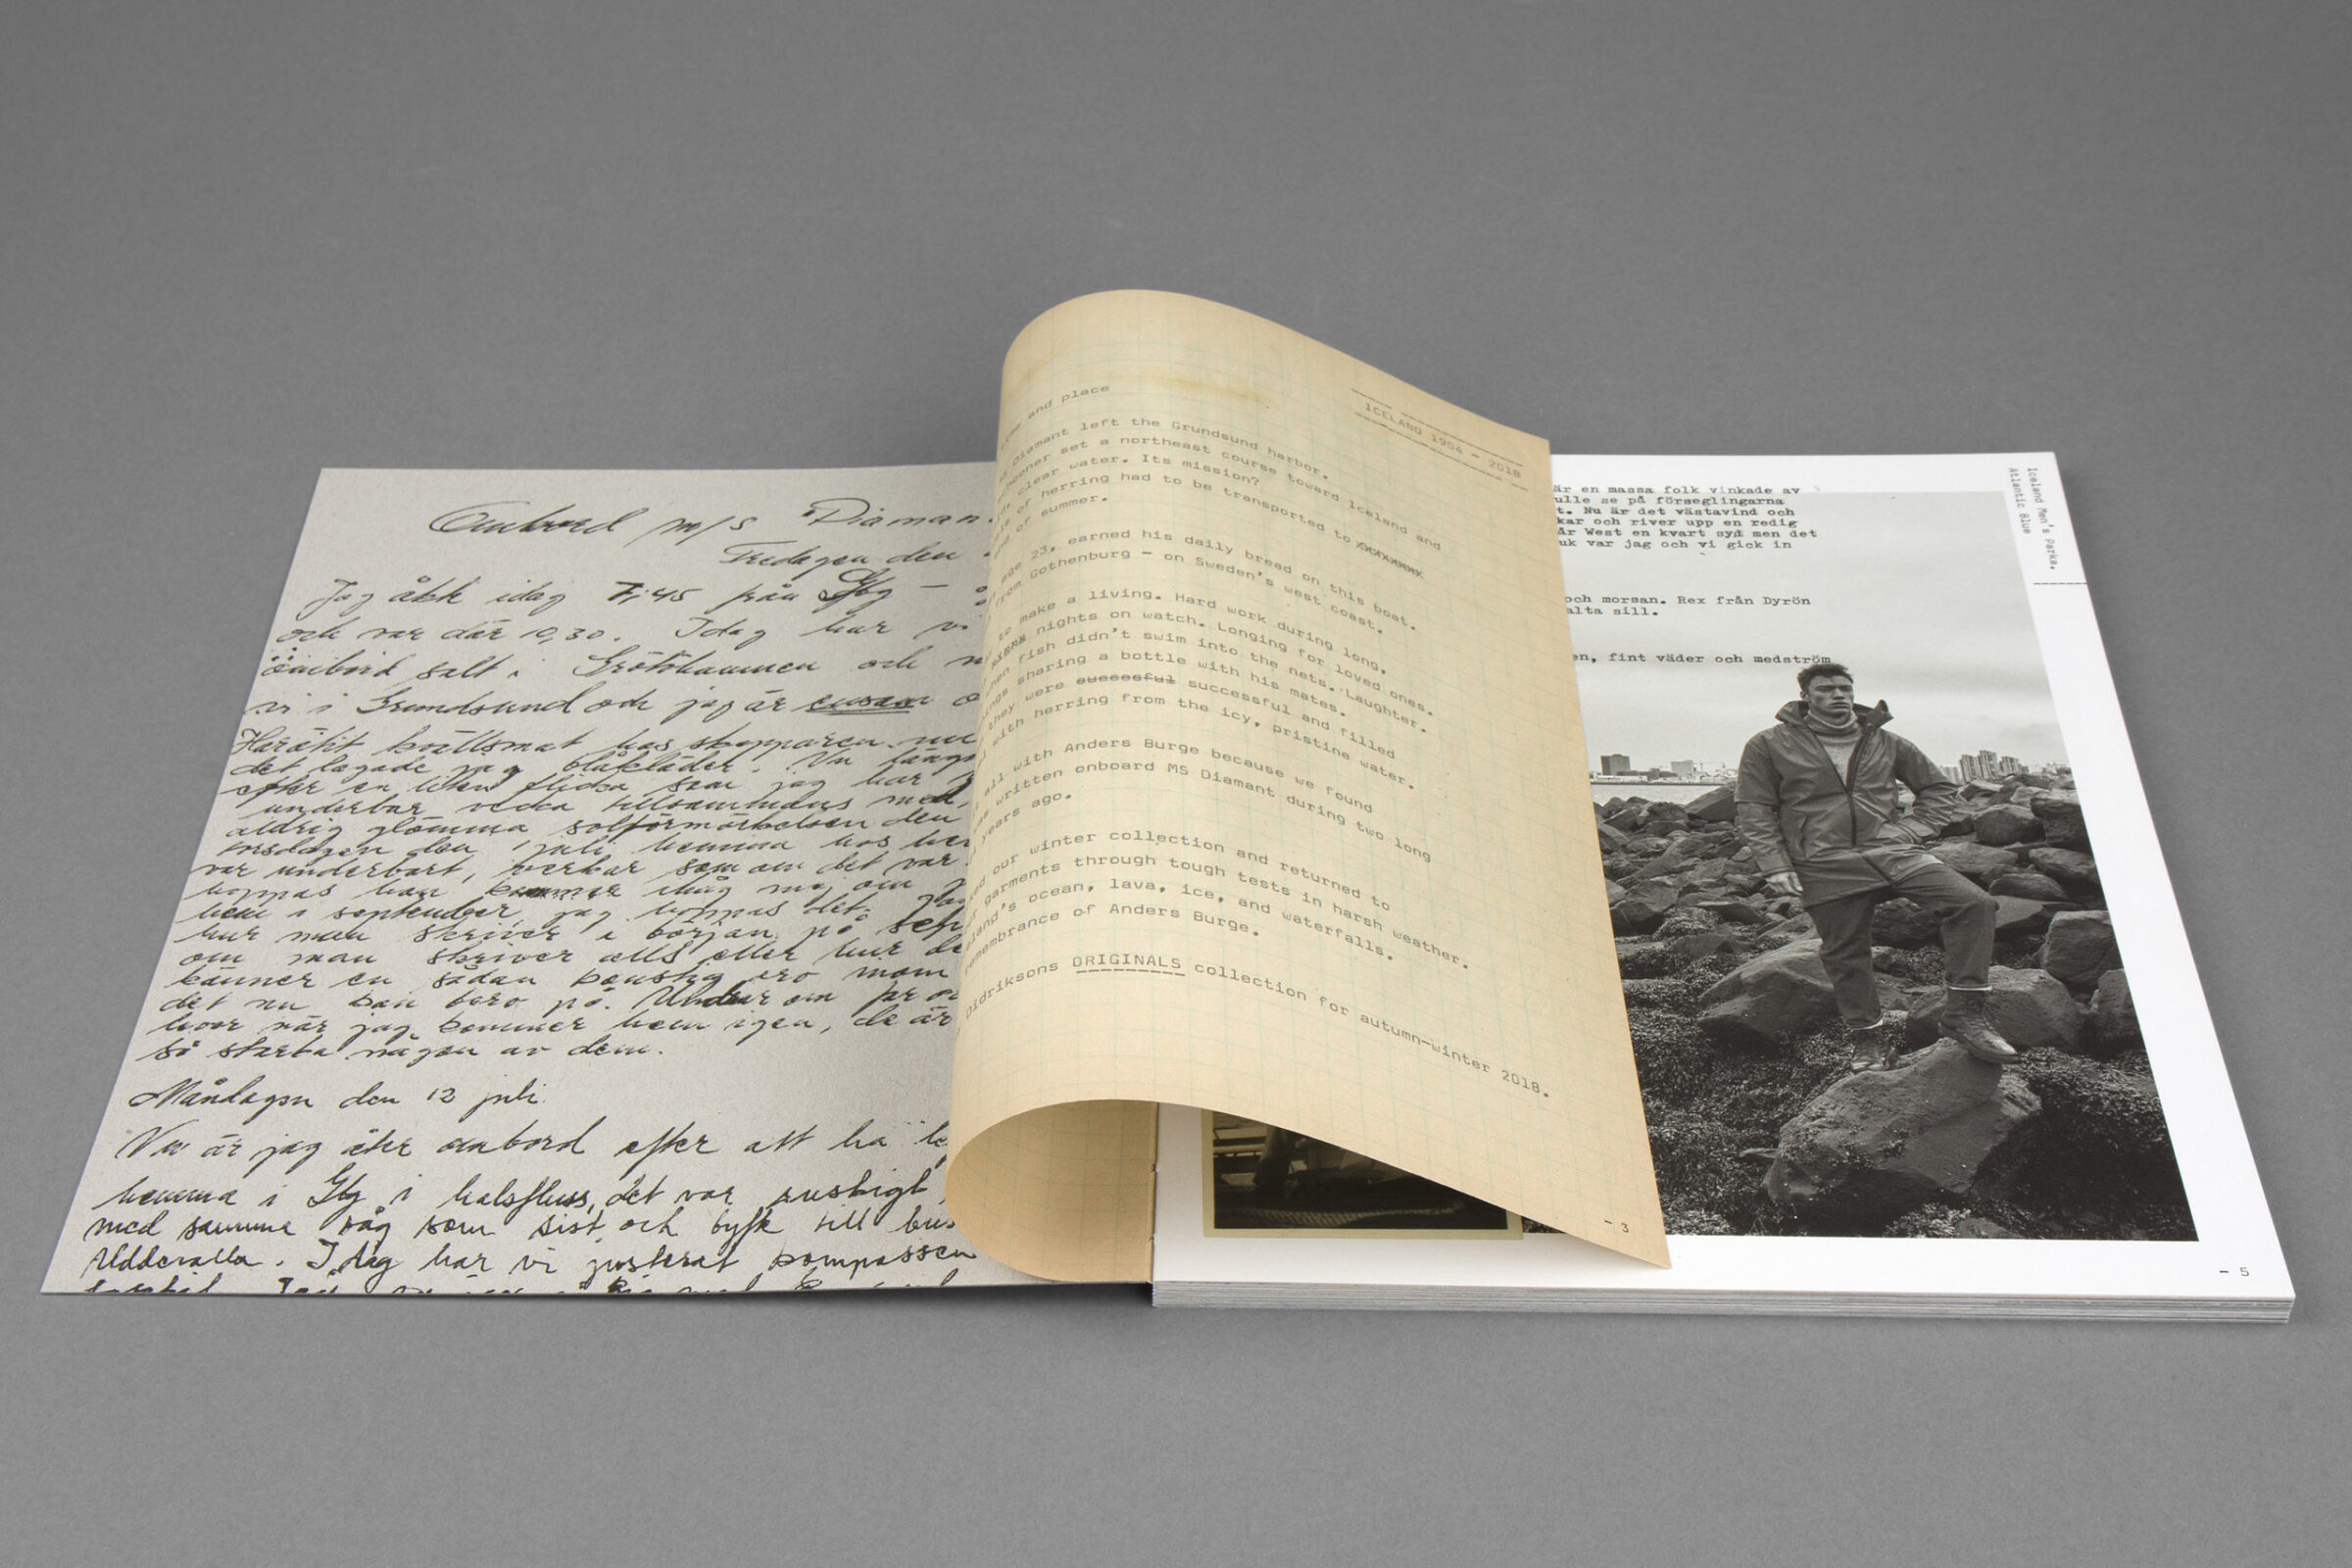 Ombord m/s "Diaman
Fredagen den
Jag åkk idag 7,45 från Gbg —
och var där 10,30. Idag har vi
ombord salt i Grötöhamnen och n
vi i Grundsund och jag är ensam o
Har ätit kvällsmat hos skepparen. nu
det lagade jag blåkläder. Nu längt
efter en liten flicka som jag har
underbar vecka tillsammans med,
aldrig glömma solförmörkelsen den
torsdagen den juli hemma hos hen
var underbart, verkar som om det var
hoppas hon kommer ihåg mej om
hem i september, jag hoppas det.
hur man skriver i början på
om man skriver alls eller hur de
känner en sådan konstig oro inom
det nu kan bero på. Undrar om
kvar när jag kommer hem igen, de är
så starka någon av dem.
Måndagen den 12 juli.
Nu är jag åter ombord efter att ha
hemma i Gbg i halsfluss, det var ruskigt
med samma tåg som sist, och bytk till bus
Uddevalla. I dag har vi justerat kompassen
ICELAND 1954 - 2018
and place
Diamant left the Grundsund harbor.
set a northeast course toward Iceland and
clear water. Its mission?
of herring had to be transported to xxxxxxx
of summer.
age 23, earned his daily bread on this boat.
from Gothenburg - on Sweden's west coast.
to make a living. Hard work during long,
nights on watch. Longing for loved ones.
fish didn't swim into the nets. Laughter.
sharing a bottle with his mates.
they were sucessful successful and filled
with herring from the icy, pristine water.
all with Anders Burge because we found
written onboard MS Diamant during two long
years ago.
our winter collection and returned to
garments through tough tests in harsh weather.
land's ocean, lava, ice, and waterfalls.
remembrance of Anders Burge.
Didriksons ORIGINALS collection for autumn-winter 2018.
- 3
är en massa folk vinkade av
ulle se på förseglingarna
t. Nu är det västavind och
kar och river upp en redig
är West en kvart syd men det
uk var jag och vi gick in
och morsan. Rex från Dyrön
alta sill.
en, fint väder och medström
Iceland Men's Parka.
Atlantic Blue
- 5